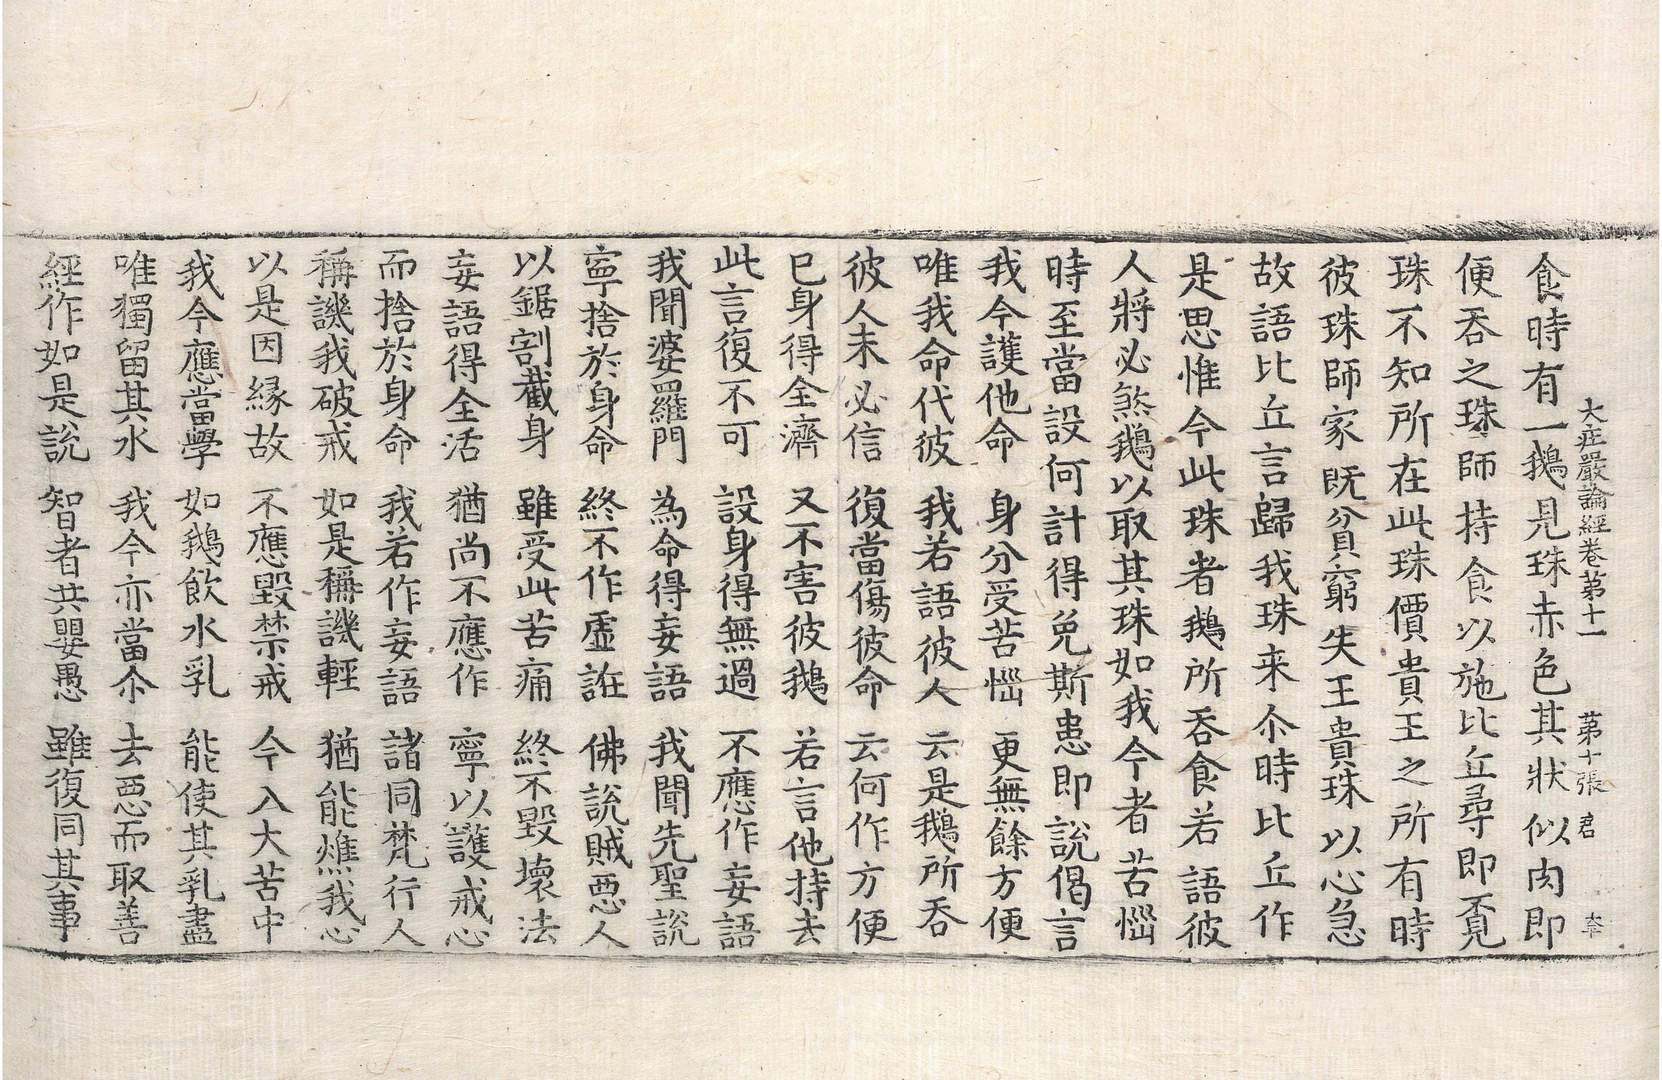 大疰嚴論經卷第十一 第十張 君
食時有一鵝見珠赤色其狀似肉即
便吞之珠師持食以施比丘尋即覔
珠不知所在此珠價貴王之所有時
彼珠師家既貧窮失王貴珠以心急
故語比丘言歸我珠来尒時比丘作
是思惟今此珠者鵝所吞食若語彼
人將必煞鵝以取其珠如我今者苦惱
時至當設何計得免斯患即說偈言
我今護他命 身分受苦惱 更無餘方便
唯我命代彼 我若語彼人 云是鵝所吞
彼人未必信 復當傷彼命 云何作方便
已身得全濟 又不害彼鵝 若言他持去
此言復不可 設身得無過 不應作妄語
我聞婆羅門 為命得妄語 我聞先聖說
寧捨於身命 終不作虛誑 佛說賊惡人
以鋸割截身 雖受此苦痛 終不毀壞法
妄語得全活 猶尚不應作 寧以護戒心
而捨於身命 我若作妄語 諸同梵行人
稱譏我破戒 如是稱譏輕 猶能燋我心
以是因緣故 不應毀禁戒 今入大苦中
我今應當學 如鵝飲水乳 能使其乳盡
唯獨留其水 我今亦當尒 去惡而取善
經作如是說 智者共嬰愚 雖復同其事